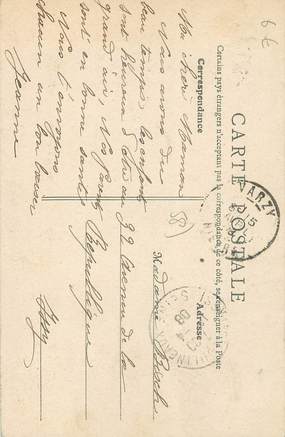 6 €
CARTE POSTALE
Certains pays étrangers n'acceptant pas la correspondance de ce côté, se renseigner à la Poste
Correspondance
Adresse
Ma chère Maman
Nous avons du
beau temps, les enfants
sont heureux d'être au
grand air, nos parents
sont en bonne santé
Nous t'envoyons
chacun un bon baiser
Jeanne
Madame
99 Avenue de la
République
Issy
(58)
ARZY